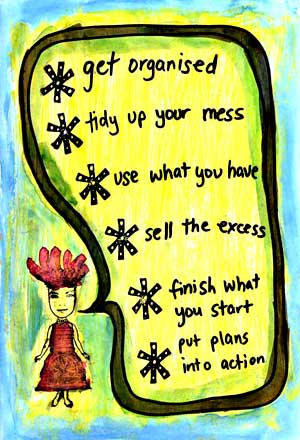 get organised
tidy up your mess
use what you have
sell the excess
finish what
you start
put plans
into action